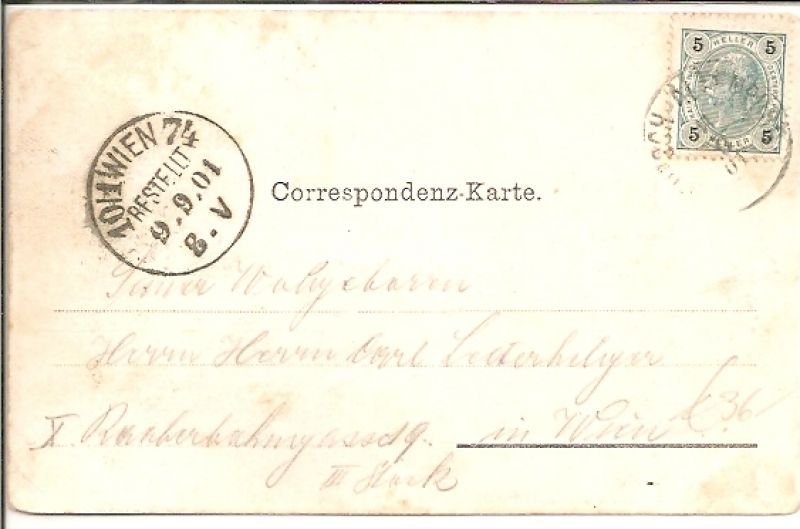 5 HELLER 5
5 HELLER 5
10/1 WIEN 74
BESTELLT
9.9.01
8.V
Correspondenz-Karte.
Seiner Wohlgeboren
Herrn Herrn Carl
X Raaberbahngasse 19. in Wien
III Stock